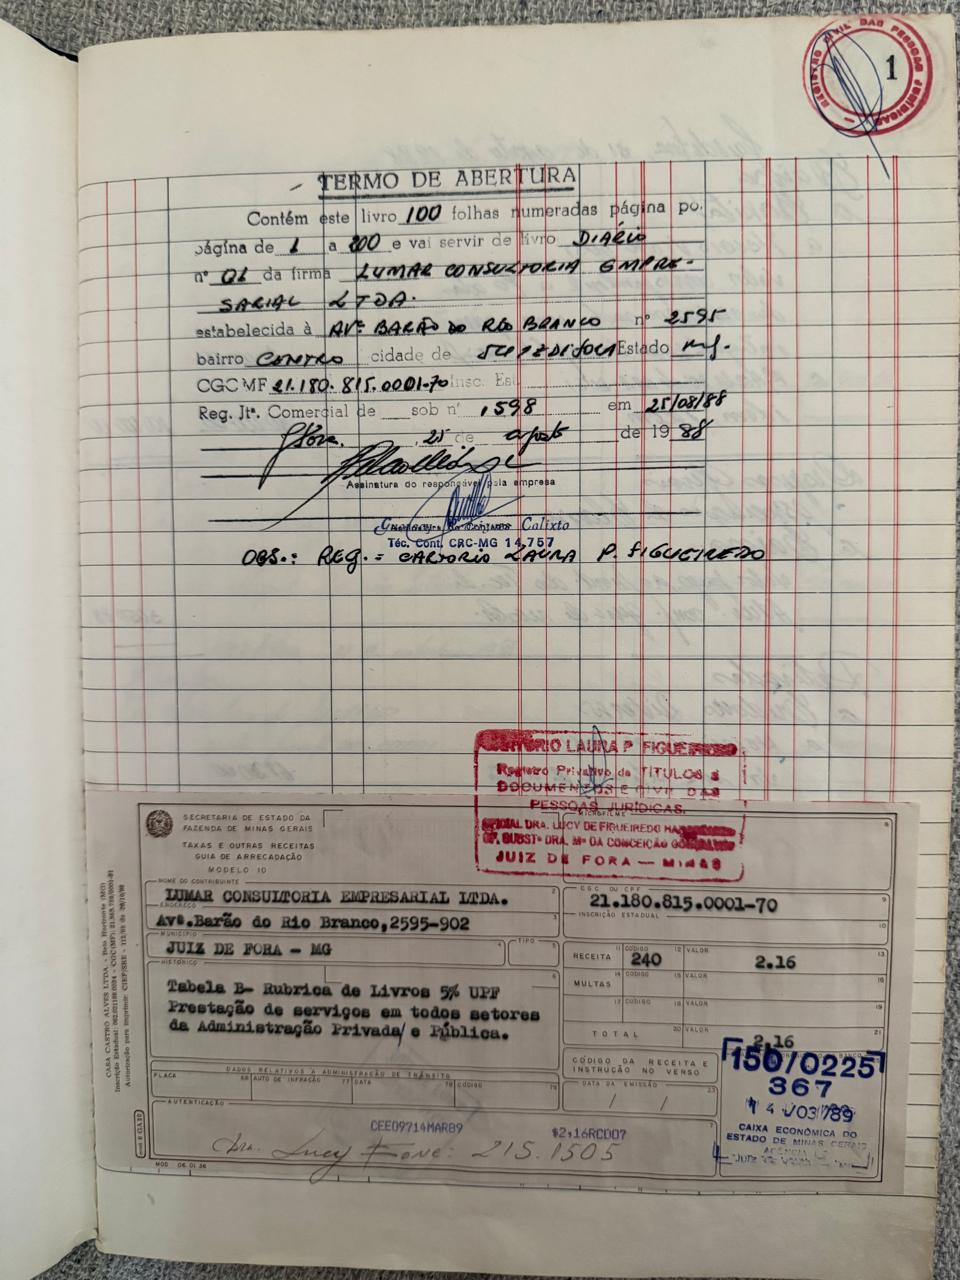 REGISTRO CIVIL DAS PESSOAS JURÍDICAS
1
TERMO DE ABERTURA
Contém este livro 100 folhas numeradas página po.
página de 1 a 100 e vai servir de livro DIARIO
nº 01 da firma LUMAR CONSULTORIA EMPRE-
SARIAL LTDA.
estabelecida à AVª BARÃO DO RIO BRANCO nº 2595
bairro CENTRO cidade de Estado MG.
CGC MF 21.180.815.0001-70 Insc. Est.
Reg. Jtª. Comercial de sob nº 1598 em 25/08/88
25 de agosto de 1988
Assinatura do responsável pela empresa
Calixto
Téc. Cont. CRC-MG 14.757
OBS.: REG. = CARTORIO LAURA P. FIGUEIREDO
CARTÓRIO LAURA P FIGUEIREDO
Registro Privativo de TÍTULOS E
DOCUMENTOS E CIVIL DAS
PESSOAS JURÍDICAS.
OFICIAL DRA. LUCY DE FIGUEIREDO
OF. SUBSTª DRA. Mª DA CONCEIÇÃO
JUIZ DE FORA — MINAS
SECRETARIA DE ESTADO DA
FAZENDA DE MINAS GERAIS
TAXAS E OUTRAS RECEITAS
GUIA DE ARRECADAÇÃO
MODELO 10
MICROFILME
NOME DO CONTRIBUINTE
LUMAR CONSULTORIA EMPRESARIAL LTDA.
CGC OU CPF
21.180.815.0001-70
ENDEREÇO
Avª.Barão do Rio Branco,2595-902
INSCRIÇÃO ESTADUAL
MUNICÍPIO
JUIZ DE FORA - MG
TIPO
RECEITA CÓDIGO 240 VALOR 2.16
HISTÓRICO
Tabela B- Rubrica de Livros 5% UPF
Prestação de serviços em todos setores
da Administração Privada/ e Pública.
MULTAS CÓDIGO VALOR
CÓDIGO VALOR
TOTAL VALOR 2.16
CÓDIGO DA RECEITA E
INSTRUÇÃO NO VERSO
DADOS RELATIVOS A ADMINISTRAÇÃO DE TRÂNSITO
PLACA AUTO DE INFRAÇÃO DATA CÓDIGO
DATA DA EMISSÃO
/ /
150/0225
367
14 /03/89
CAIXA ECONÔMICA DO
ESTADO DE MINAS GERAIS
AUTENTICAÇÃO
CEE09714MAR89 $2,16RCD07
Dra. Lucy Fone: 215.1505
MOD 06.01.36
CASA CASTRO ALVES LTDA. - Belo Horizonte (MG)